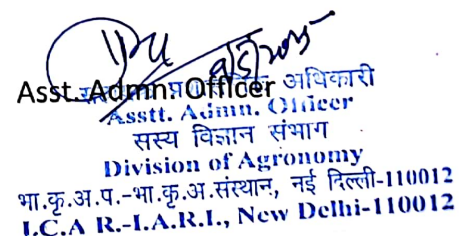 Asst. Admn. Officer
अधिकारी
Asstt. Admn. Officer
सस्य विज्ञान संभाग
Division of Agronomy
भा.कृ.अ.प.-भा.कृ.अ.संस्थान, नई दिल्ली-110012
I.C.A R.-I.A.R.I., New Delhi-110012